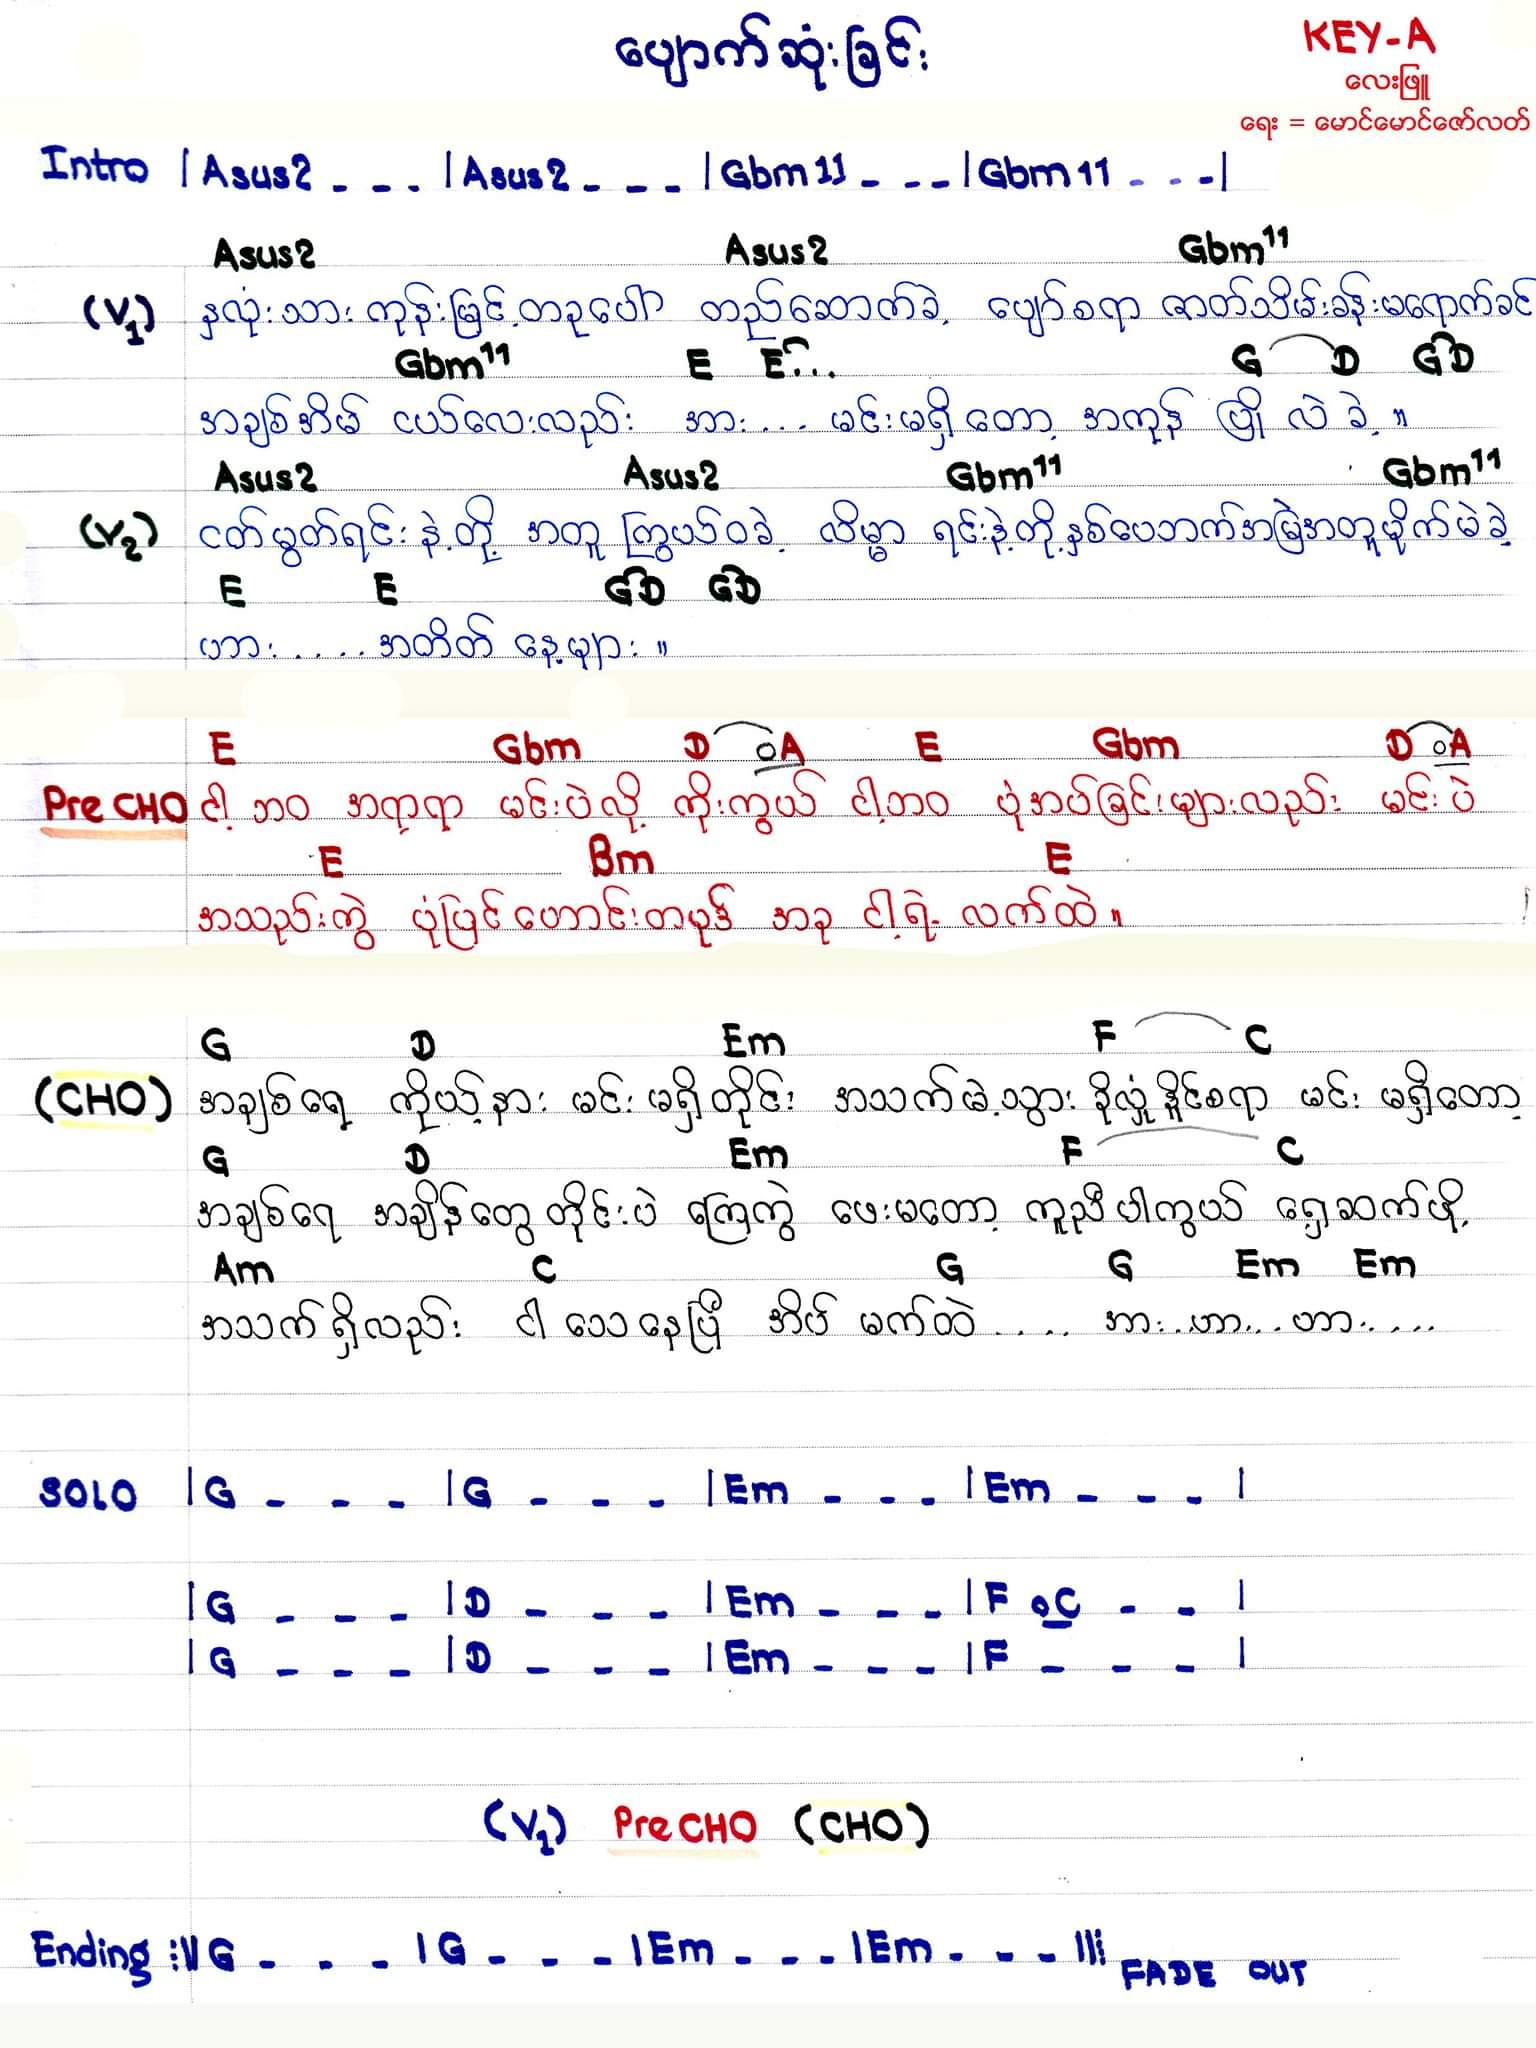 ပျောက်ဆုံးခြင်း
KEY-A
လေးဖြူ
ရေး = မောင်မောင်ဇော်လတ်
Intro |Asus2 - - - |Asus2 - - - |Gbm11 - - - |Gbm11 - - - |
Asus2 Asus2 Gbm11
(V1) နှလုံးသား ကုန်းမြင့်တခုပေါ် တည်ဆောက်ခဲ့ ပျော်စရာ ဇာတ်သိမ်းခန်းမရောက်ခင်
Gbm11 E E... G D G D
အချစ်အိမ် ငယ်လေးလည်း အား... မင်းမရှိတော့ အကုန် ပြို လဲ ခဲ့ ။
Asus2 Asus2 Gbm11 Gbm11
(V2) ငတ်မွတ်ရင်းနဲ့တို့ အတူ ကြွယ်ဝခဲ့ လိမ္မာ ရင်းနဲ့တို့နှစ်ယောက်အမြဲအတူမိုက်မဲခဲ့
E E G D G D
ဟား.....အတိတ် နေ့များ ။
E Gbm D A E Gbm D A
Pre CHO ငါ့ ဘဝ အရာရာ မင်းပဲလို့ ကိုးကွယ် ငါ့ဘဝ ပုံအပ်ခြင်းများလည်း မင်းပဲ
E Bm E
အသည်းကွဲ ပုံပြင်ဟောင်းတပုဒ် အခု ငါ့ရဲ့ လက်ထဲ ။
G D Em F C
(CHO) အချစ်ရေ ကိုယ့်နား မင်းမရှိတိုင်း အသက်မဲ့သွား ခိုလှုံနိုင်စရာ မင်း မရှိတော့
G D Em F C
အချစ်ရေ အချိန်တွေတိုင်းပဲ ကြေကွဲ ဖေးမတော့ ကူညီပါကွယ် ရှေ့ဆက်ဖို့
Am C G G Em Em
အသက်ရှိလည်း ငါ သေနေပြီ အိပ် မက်ထဲ .... အား..ဟာ...ဟား....
SOLO |G - - - |G - - - |Em - - - |Em - - - |
|G - - - |D - - - |Em - - - |F C - - |
|G - - - |D - - - |Em - - - |F - - - |
(V1) Pre CHO (CHO)
Ending :||G - - - |G - - - |Em - - - |Em - - - ||: FADE OUT